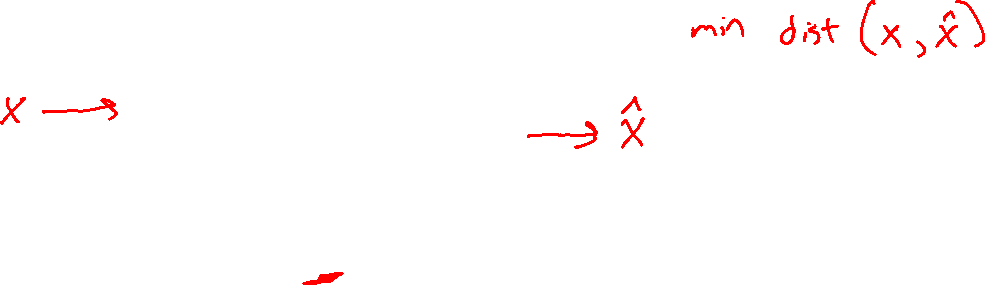 min dist (x, x̂)
x →
→ x̂